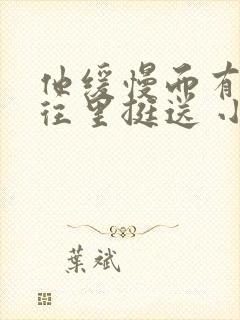 他缓慢而有
往里挺送 小
葉斌